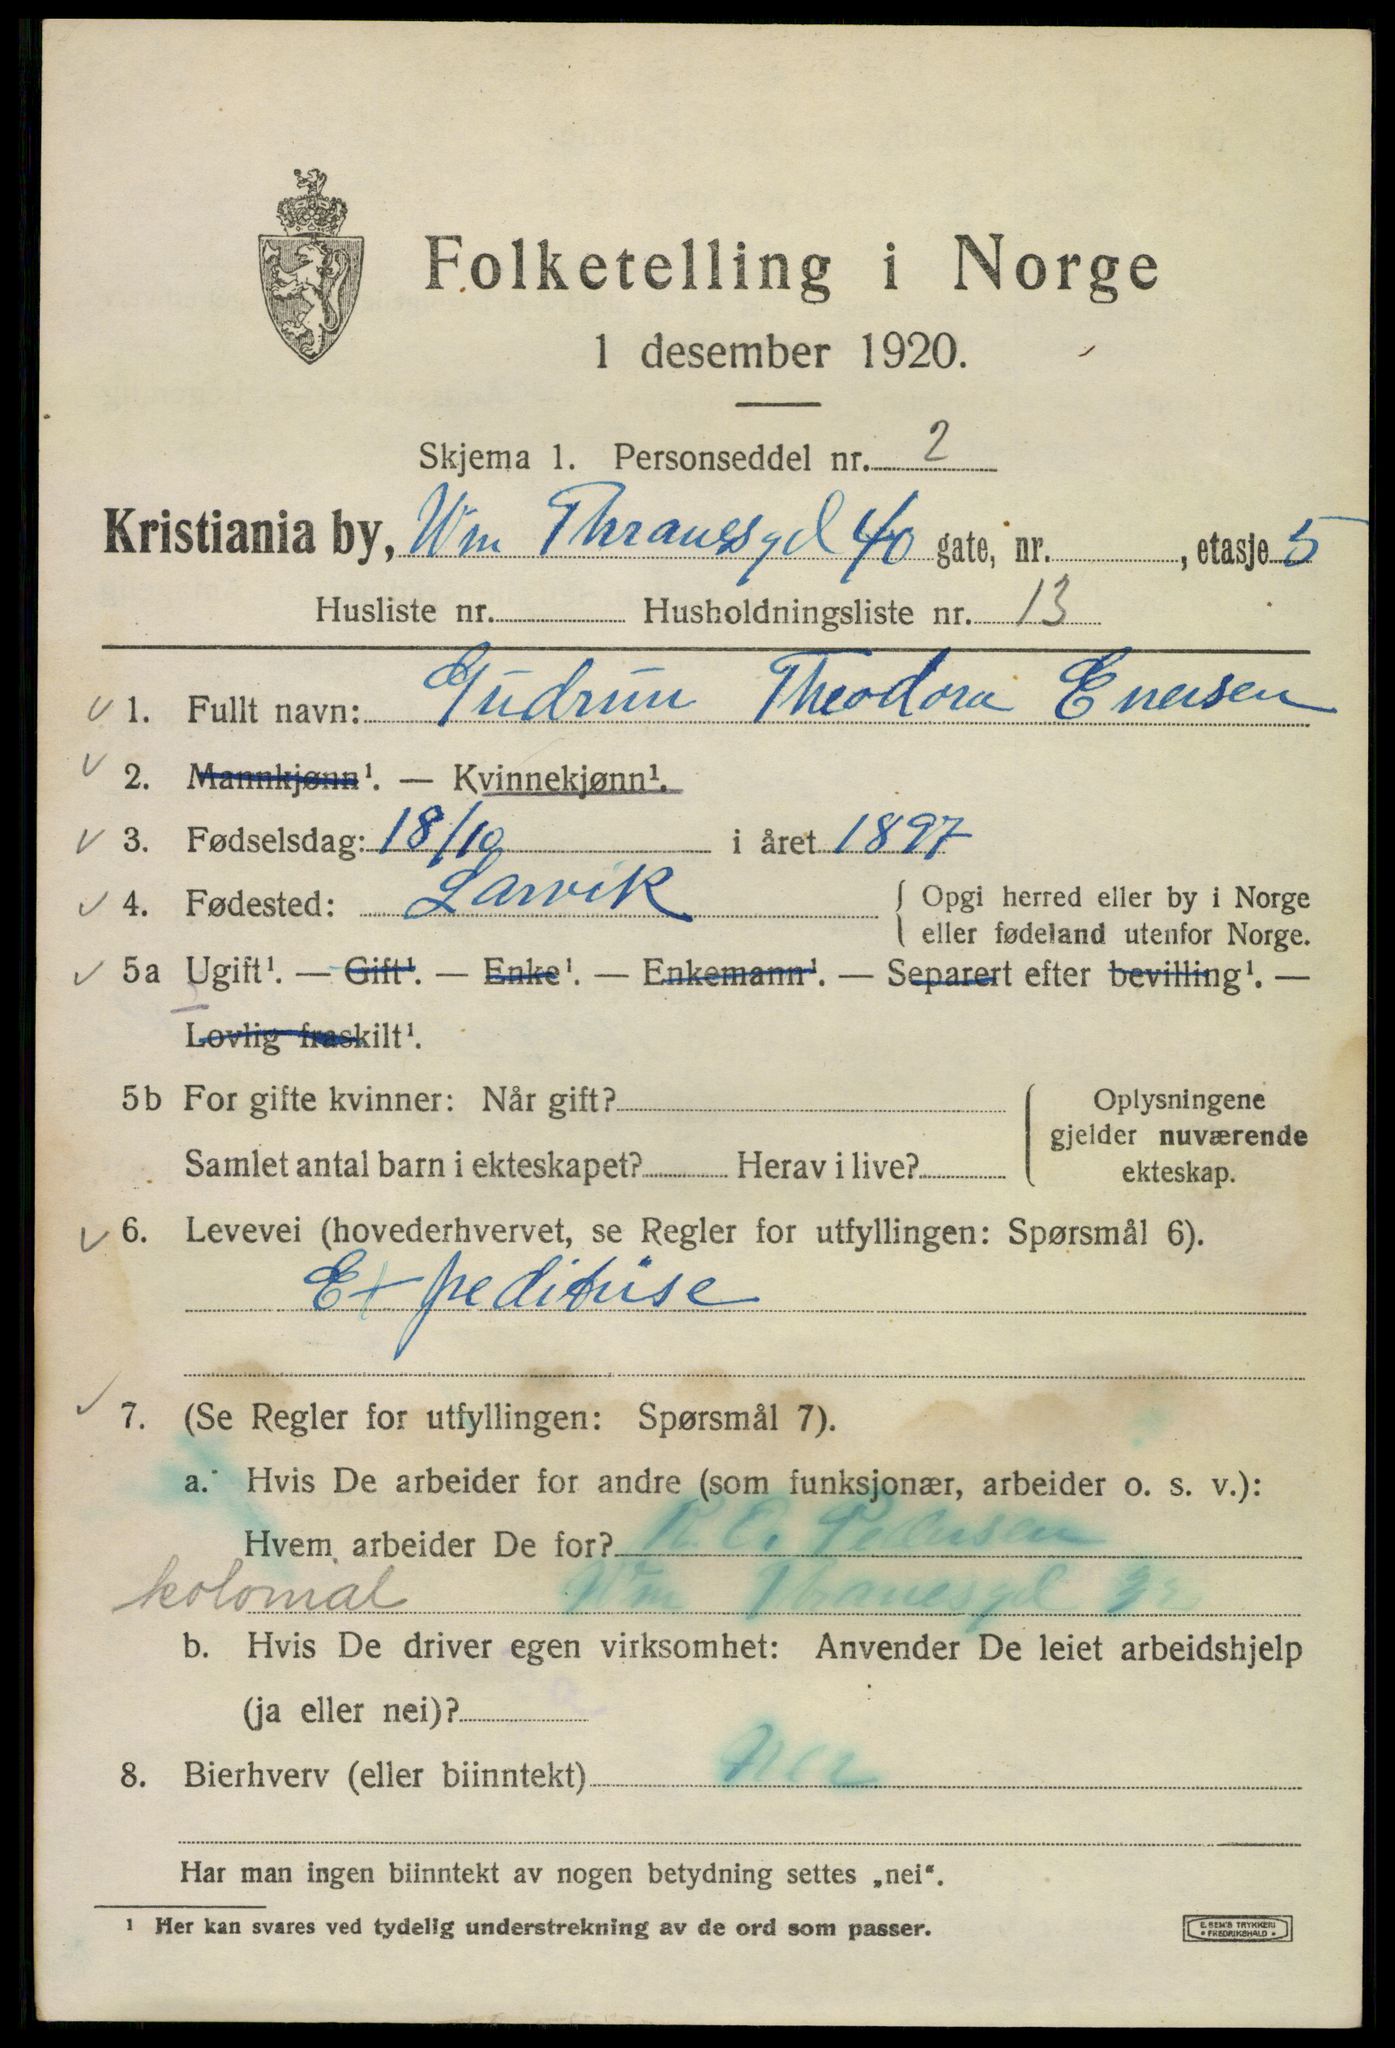 Folketelling i Norge
1 desember 1920.
Skjema 1. Personseddel nr. 2
Kristiania by, Wm Thranesgd 40 gate, nr. , etasje 5
Husliste nr. Husholdningsliste nr. 13
1. Fullt navn: Gudrun Theodora Enersen
2. Mannkjønn¹. — Kvinnekjønn¹.
3. Fødselsdag: 18/10 i året 1897
4. Fødested: Larvik { Opgi herred eller by i Norge
eller fødeland utenfor Norge.
5a Ugift¹. — Gift¹. — Enke¹. — Enkemann¹. — Separert efter bevilling¹. —
Lovlig fraskilt¹.
5b For gifte kvinner: Når gift? Oplysningene
gjelder nuværende
Samlet antal barn i ekteskapet? Herav i live? ekteskap.
6. Levevei (hovederhvervet, se Regler for utfyllingen: Spørsmål 6).
Expeditrise
7. (Se Regler for utfyllingen: Spørsmål 7).
a. Hvis De arbeider for andre (som funksjonær, arbeider o. s. v.):
Hvem arbeider De for? Pedersen
kolonial Wm Thranesgd
b. Hvis De driver egen virksomhet: Anvender De leiet arbeidshjelp
(ja eller nei)?
8. Bierhverv (eller biinntekt) Nei
Har man ingen biinntekt av nogen betydning settes „nei“.
¹ Her kan svares ved tydelig understrekning av de ord som passer.
E. SEM'S TRYKKERI
FREDRIKSHALD